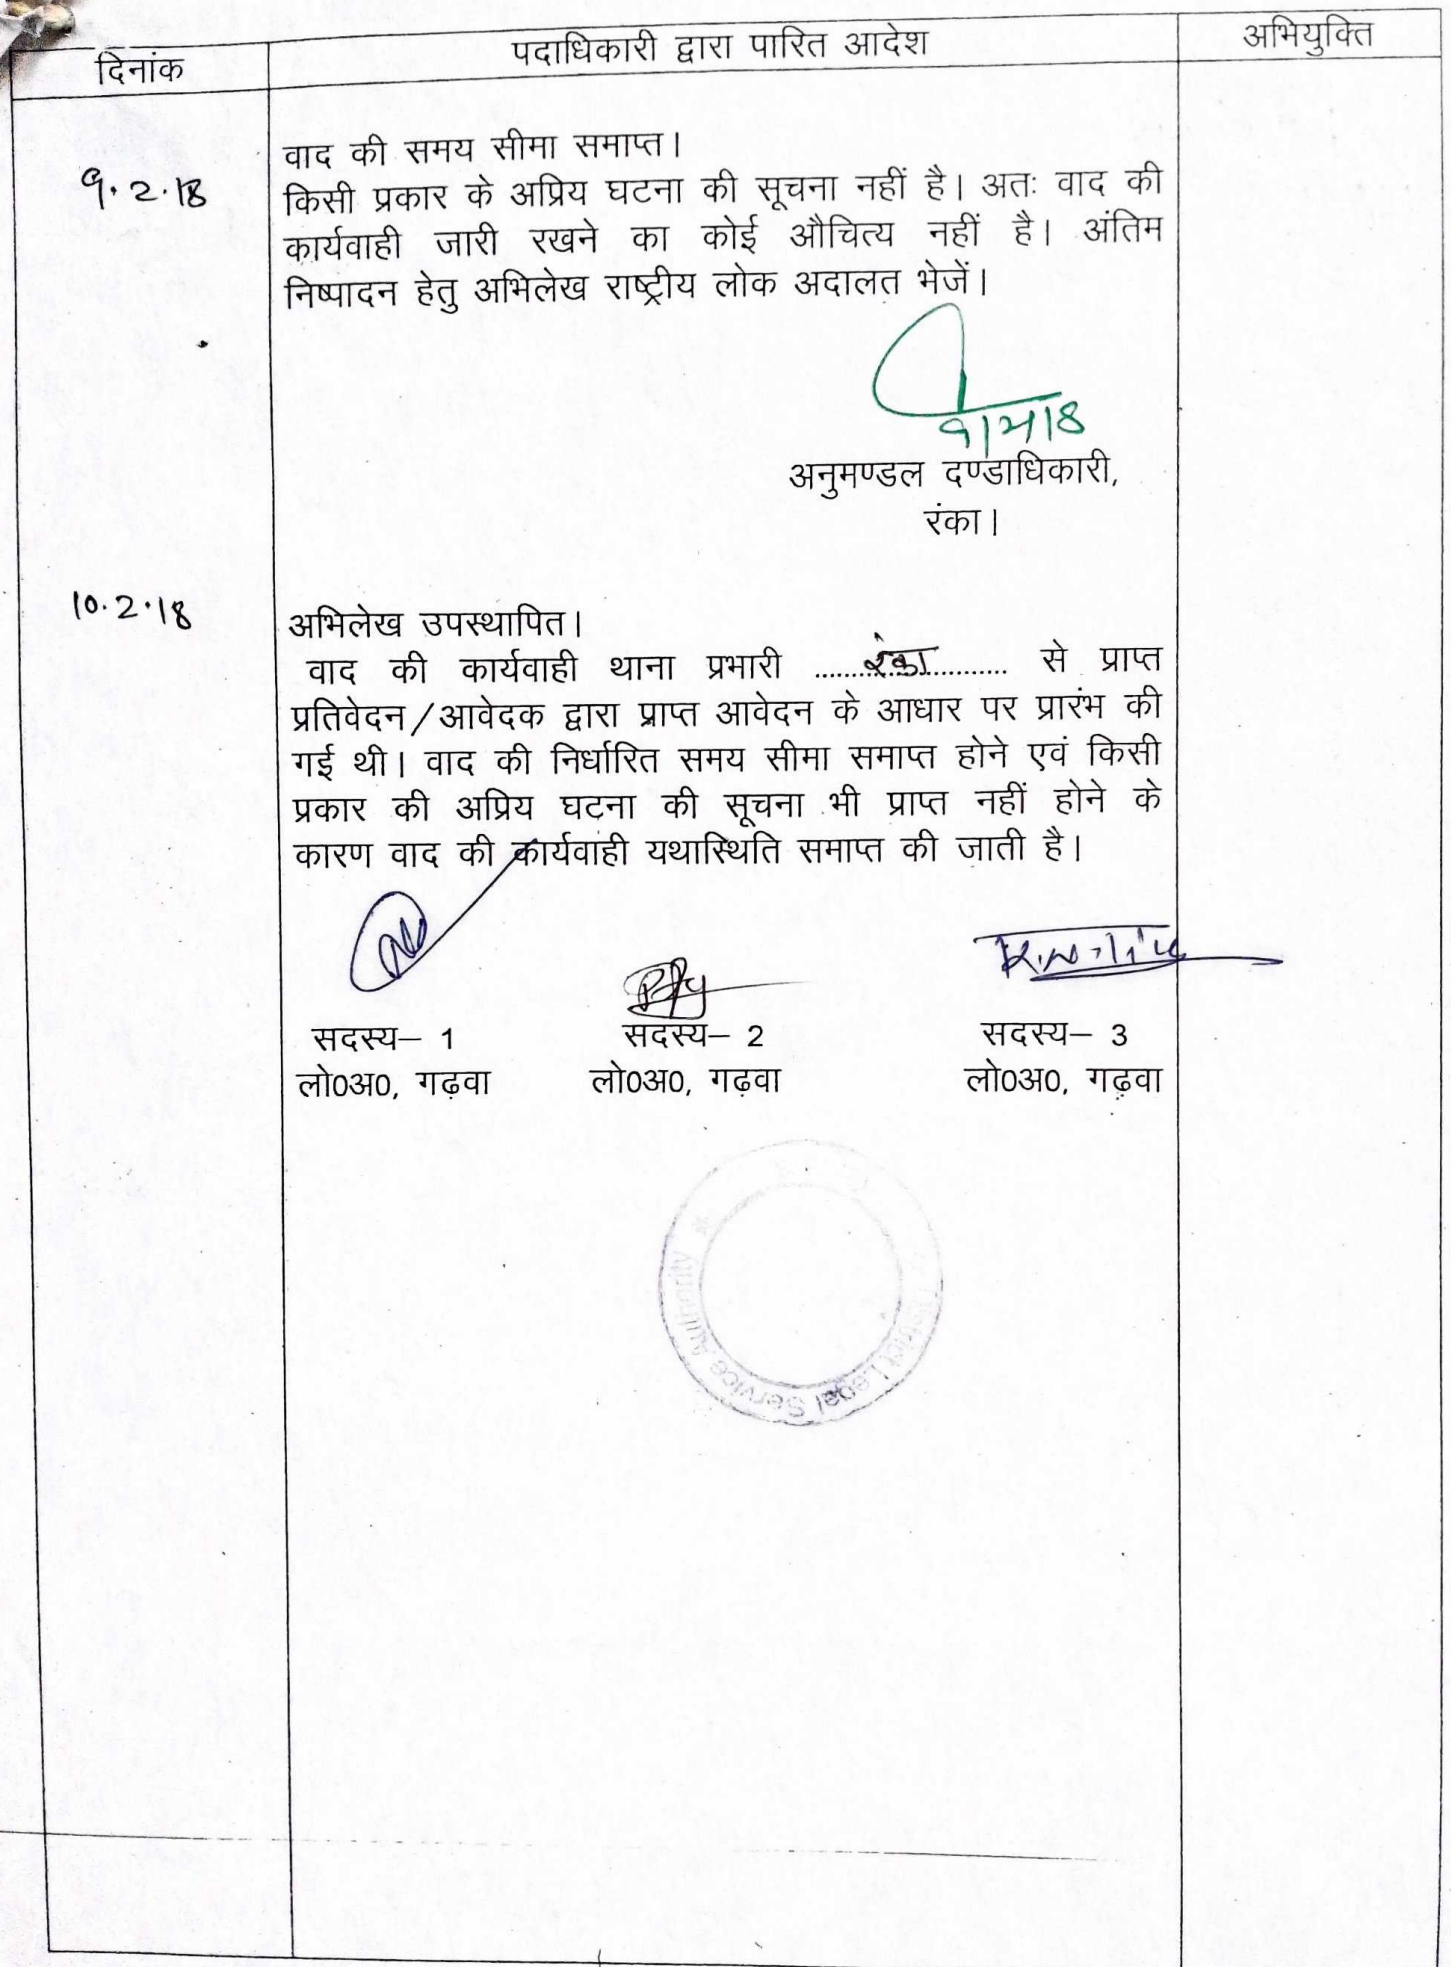 दिनांक
पदाधिकारी द्वारा पारित आदेश
अभियुक्ति
9.2.18
वाद की समय सीमा समाप्त।
किसी प्रकार के अप्रिय घटना की सूचना नहीं है। अतः वाद की
कार्यवाही जारी रखने का कोई औचित्य नहीं है। अंतिम
निष्पादन हेतु अभिलेख राष्ट्रीय लोक अदालत भेजें।
अनुमण्डल दण्डाधिकारी,
रंका।
10.2.18
अभिलेख उपस्थापित।
वाद की कार्यवाही थाना प्रभारी ......रंका...... से प्राप्त
प्रतिवेदन/आवेदक द्वारा प्राप्त आवेदन के आधार पर प्रारंभ की
गई थी। वाद की निर्धारित समय सीमा समाप्त होने एवं किसी
प्रकार की अप्रिय घटना की सूचना भी प्राप्त नहीं होने के
कारण वाद की कार्यवाही यथास्थिति समाप्त की जाती है।
सदस्य– 1 सदस्य– 2 सदस्य– 3
लो0अ0, गढ़वा लो0अ0, गढ़वा लो0अ0, गढ़वा
District Legal Service Authority